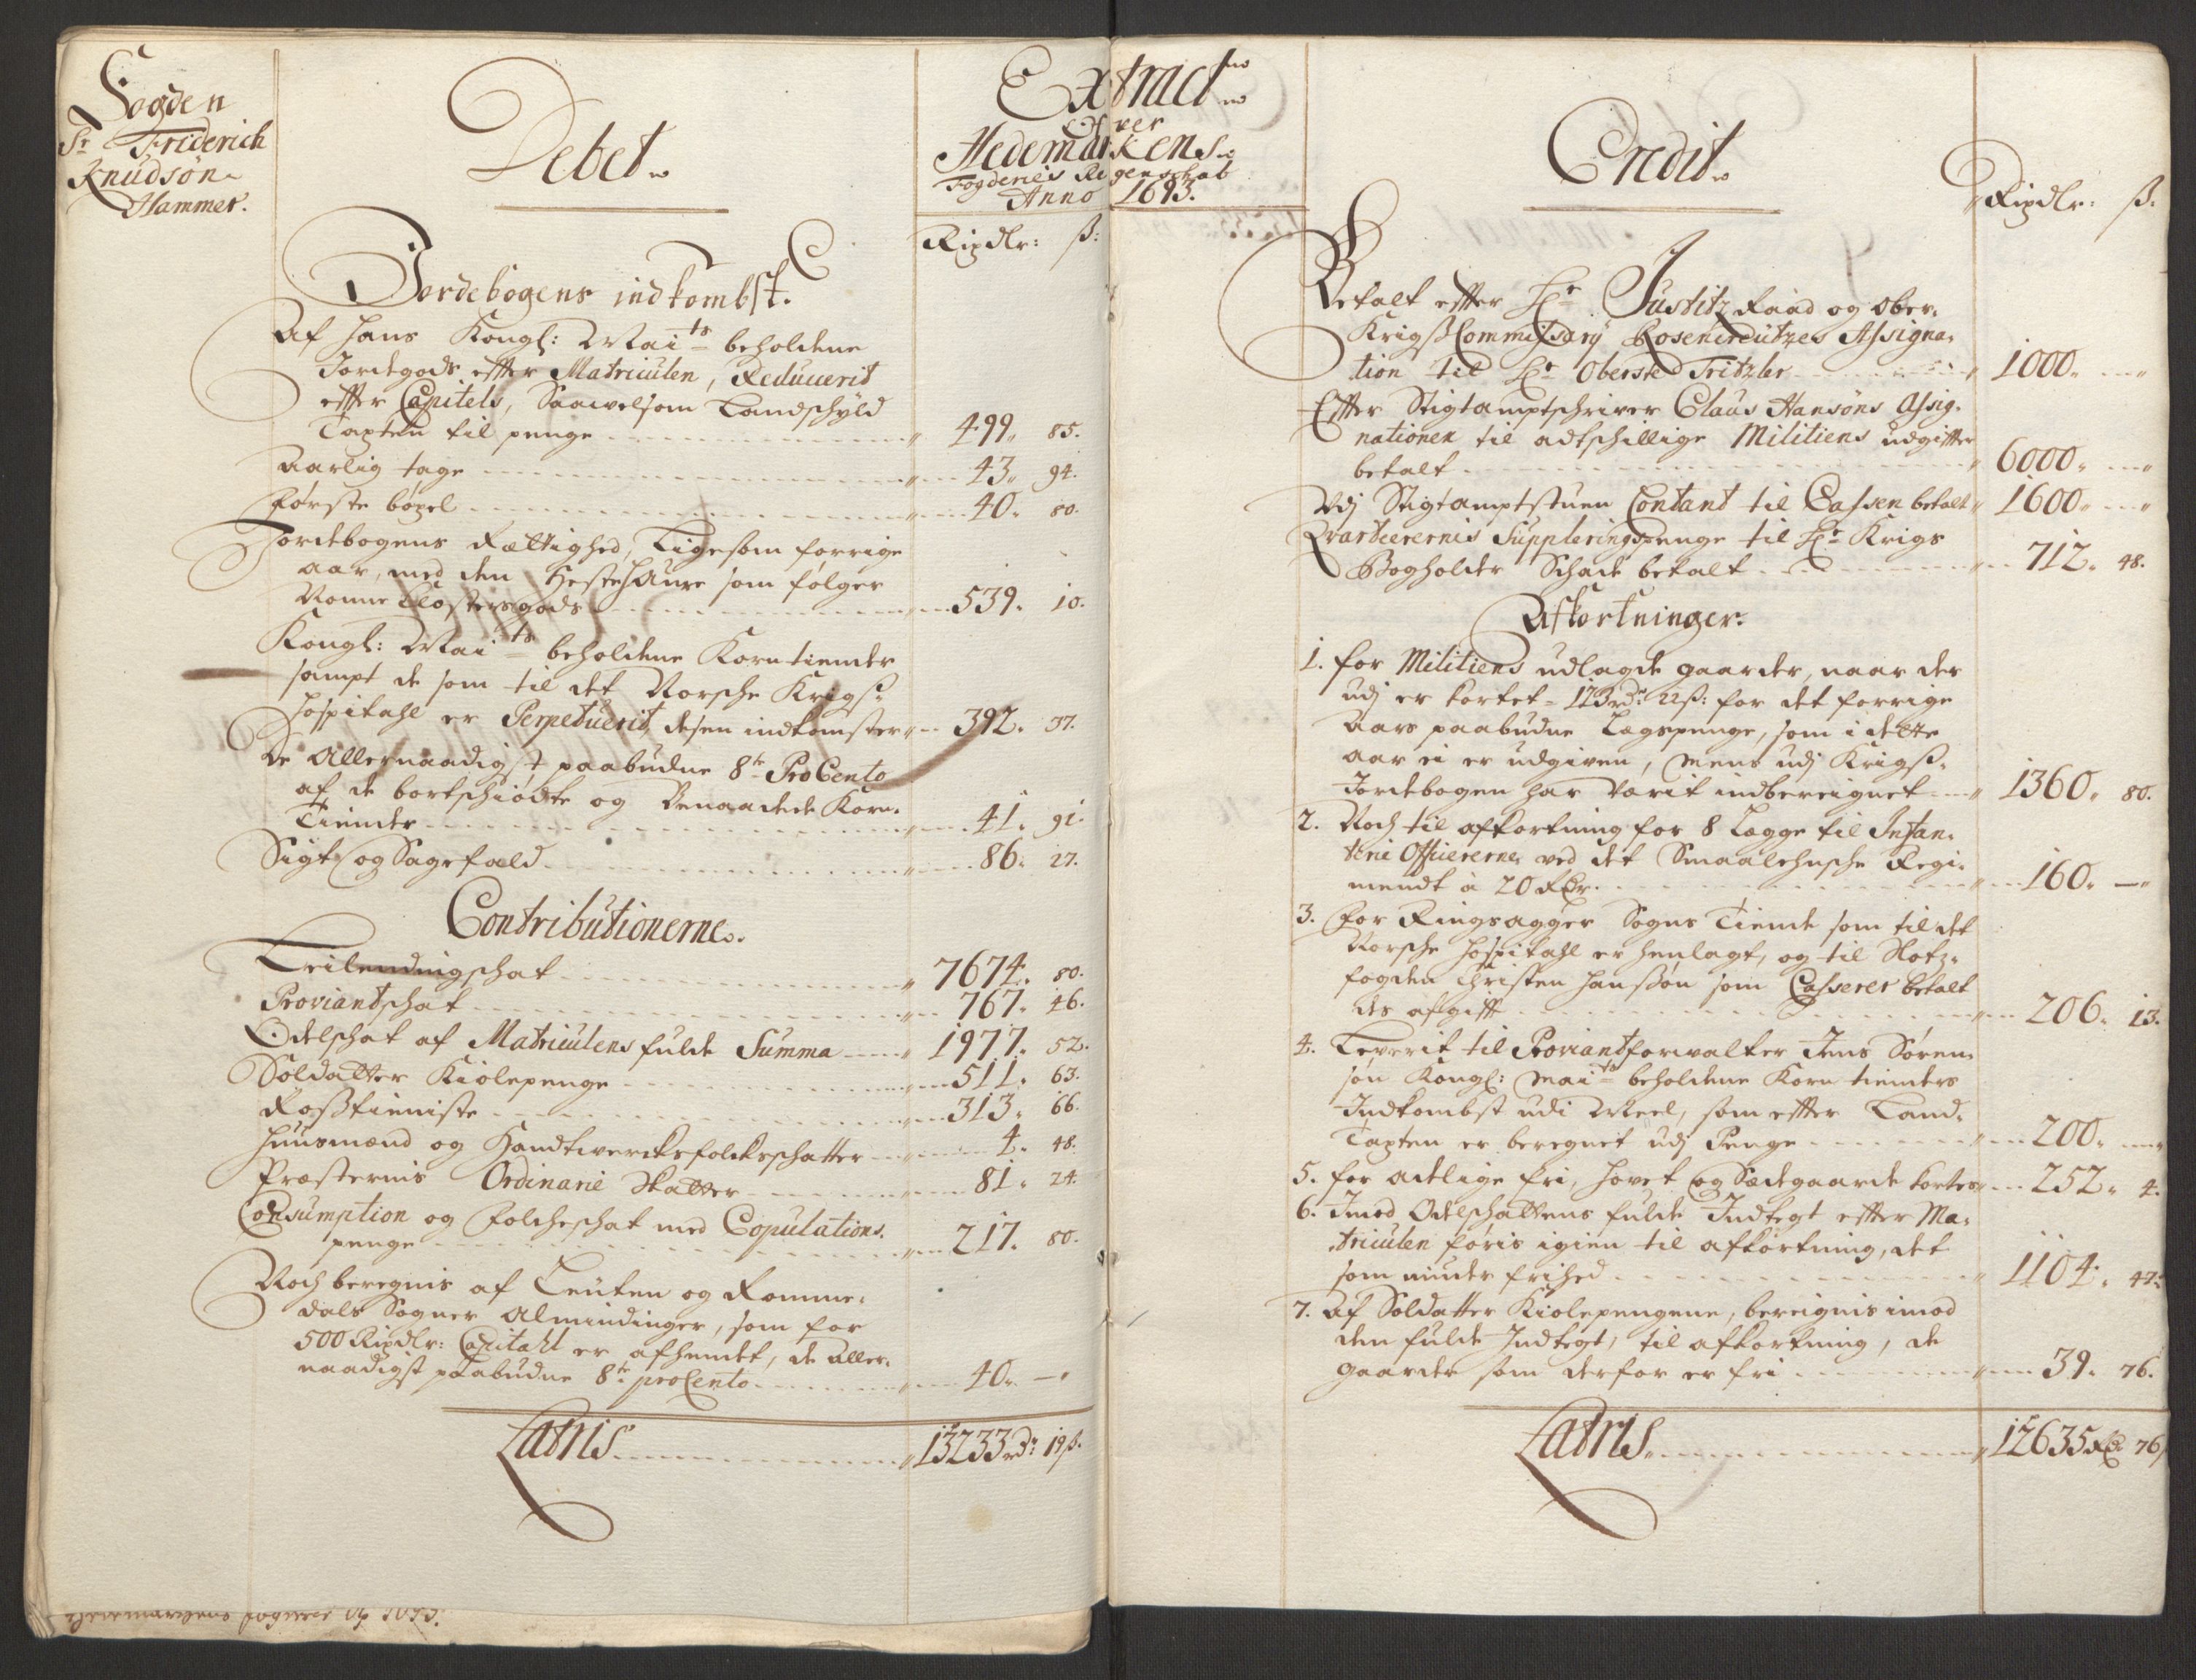 Fogden
Sr Friderich
Knudsøn
Hammer.
Debet
Extract
Ofver
Hedemarkens
Fogderies Regenschab
Anno 1693.
Rixdlr: ß:
Jordebogens indkombst.
Af hans Kongl: Maits beholdene
Jordegods efter Matriculen, Reducerit
efter Capitels, Saawelsom Landschyld
Taxten til penge 499 85.
Aarlig tage 43 94.
Første bøxel 40. 80.
Jordebogens Rættighed, Ligesom forrige
aar, med den Hestehaure som følger
Nonne Closters gods 539. 10.
Kongl: Maits beholdene Korntiender
sampt de som til det Norsche Krigs
hospitahl er Perpetuerit, desen indkomster 392. 37.
De Allernaadigst paabudne 8te ProCento
af de bortschiødte og Benaadede Korn-
Tiender 41. 91.
Sigt og Sagefald 86. 27.
Contributionerne.
Leilendingschat 7674. 80.
Proviantschat 767. 46.
Odelschat af Matriculens fulde Summa 1977. 52.
Soldatter Kiolepenge 511. 63.
Rosstieniste 313. 66.
Huusmænd og Handtwercksfolckschatter 4. 48.
Præsternis Ordinarie Skatter 81. 24.
Consumption og folcheschat med Copulations-
penge 217. 80.
Noch beregnis af Leuten og Romme-
dals Sogner Almindinger, som for
500 Rixdlr: Capitahl er afhendt, de Aller-
naadigst paabudne 8te proCento 40. —
Latris 13233 rdr 19 ß.
Credit
Rixdlr: ß.
Betalt efter Hr Justitz Raad og Ober-
Krigs Commissary Rosencreutzes Assigna-
tion til Hr Obersted Tritzler 1000.
Efter Stigtamptschriver Claus Hansøns Assig-
nationer til adtschillige Militiens udgifter
betalt 6000.
Udj Stigtamptstuen Contant til Cassen betalt 1600.
Qvarteerernis Suppleringspenge til Hr Krigs
Bogholder Schade betalt 712. 48.
Afkortninger.
1. for Militiens udlagde gaarder, naar der
udj er kortet 123 rdr 22 ß: for det forrige
Aars paabudne Lægspenge, som i dette
aar ei er udgiven, mens udj Krigs-
Jordebogen har værit indbereignet 1360. 80.
2. Noch til afkortning for 8 Lægge til Infan-
terie Officererne ved det Smaalehnsche Regi-
mendt à 20 Rdr. 160. —
3. For Ringsagger Sogns Tiende som til det
Norsche Hospitahl er henlagt, og til Slotz-
fogden Christen Hanssøn som Casserer betalt
des afgifft 206. 13.
4. Leverit til Proviantforwalter Jens Søren-
søn Kongl: Maits beholdene Korn tienders
Indkombst udi Meel, som efter Land-
Taxten er beregnet udj Penge 200.
5. for adelige fri, hovet og Sædegaarde kortes 252. 4.
6. Imod Odelschattens fulde Indtegt efter Ma-
triculen føris igien til afkortning, det
som niuder frihed 1104. 47.
7. Af Soldatter Kiolepengene, bereignis imod
den fulde Indtegt, til afkortning, de
gaarder som derfor er fri 39. 76.
Latris 12635 Rd 76